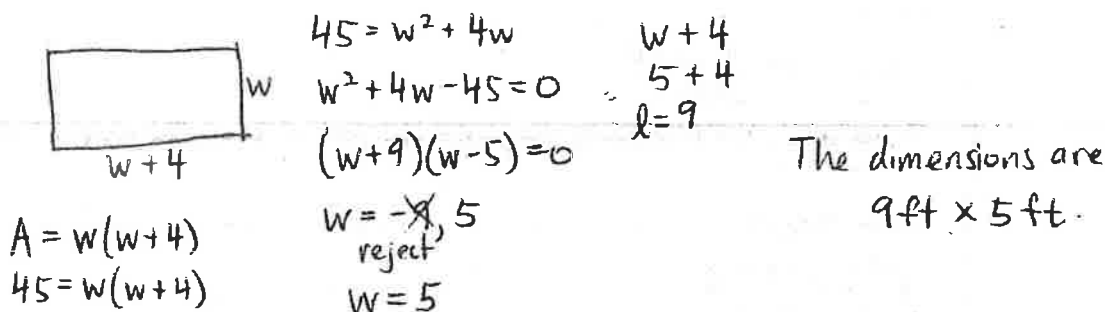 w
w + 4
A = w(w+4)
45 = w(w+4)
45 = w² + 4w
w² + 4w - 45 = 0
(w+9)(w-5) = 0
w = -9, 5
reject
w = 5
w + 4
5 + 4
l = 9
The dimensions are
9ft × 5 ft.